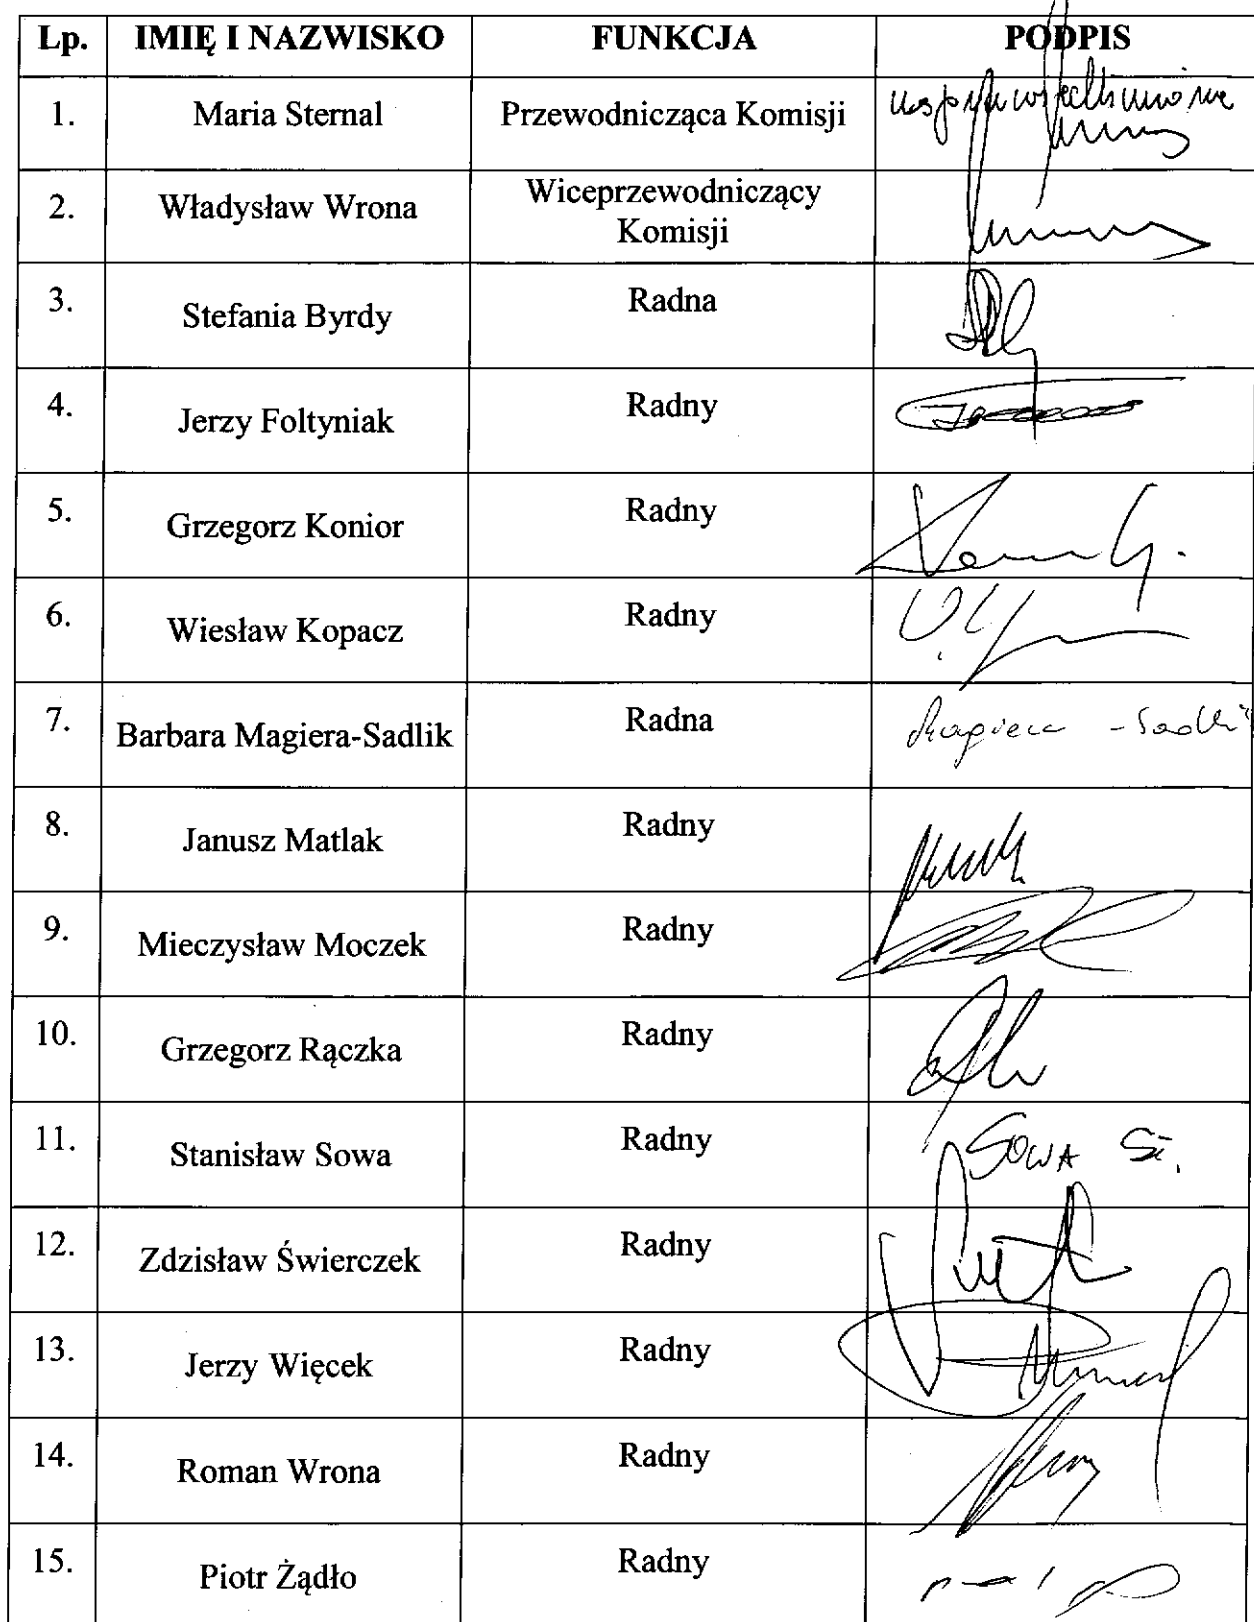 Lp. IMIĘ I NAZWISKO FUNKCJA PODPIS
1. Maria Sternal Przewodnicząca Komisji
2. Władysław Wrona Wiceprzewodniczący
Komisji
3. Stefania Byrdy Radna
4. Jerzy Foltyniak Radny
5. Grzegorz Konior Radny
6. Wiesław Kopacz Radny
7. Barbara Magiera-Sadlik Radna Magiera - Sadlik
8. Janusz Matlak Radny
9. Mieczysław Moczek Radny
10. Grzegorz Rączka Radny
11. Stanisław Sowa Radny SOWA St.
12. Zdzisław Świerczek Radny
13. Jerzy Więcek Radny
14. Roman Wrona Radny
15. Piotr Żądło Radny